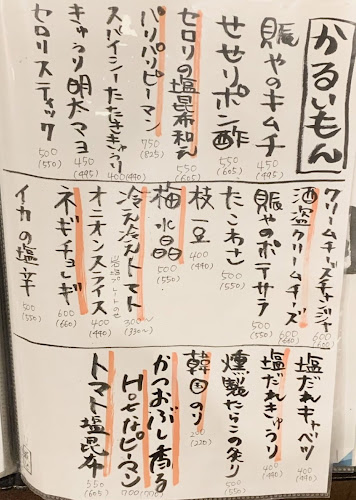 かるいもん
賑やのキムチ
450
(495)
せせりポン酢
550
(605)
セロリの塩昆布和え
550
(605)
パリパリピーマン
750
(825)
スパイシーたたききゅうり
400(440)
きゅうり明太マヨ
450
(495)
セロリスティック
500
(550)
クリームチーズチャンジャ
600
(660)
酒盗クリームチーズ
600
(660)
賑やのポテサラ
500
(550)
たこわさ
500
(550)
枝豆
400
(440)
梅水晶
500
(550)
冷え冷えトマト
300〜
(330〜)
オニオンスライス
400
(440)
ネギチョレギ
600
(660)
イカの塩辛
500
(550)
塩だれキャベツ
400
(440)
塩だれきゅうり
400
(440)
燻製たらこの炙り
500
(550)
韓国のり
200
(220)
かつおぶし香る
Hotなピーマン
700(770)
トマト塩昆布
550
(605)